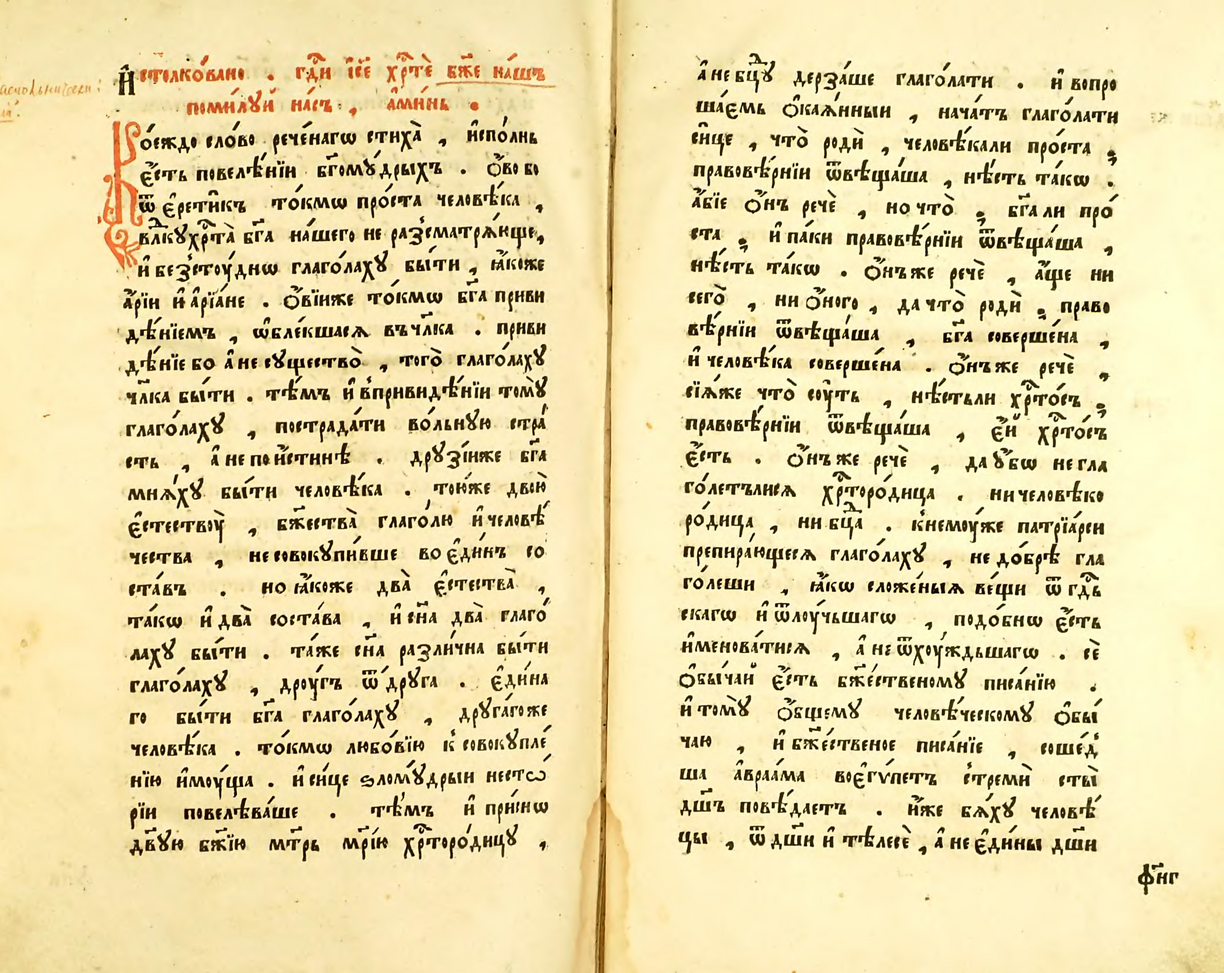 И҆столко́вано . гд҇и і҆с҃е хр҇тѐ бж҃е на́шъ
поми́лꙋй на́съ , а҆ми́нь .
Ко́еждо сло́во рече́нагѡ стиха̀ , и҆спо́лнь
є҆́сть повелѣ́нїи бг҃омꙋ́дрыхъ . ѻ҆́во бо
ѿ є҆рети́къ то́кмѡ про́ста человѣ́ка ,
влⷣкꙋхрⷭ҇та̀ бг҃а на́шего не разсматрѧ́юще ,
и҆ безстоу́днѡ глаго́лахꙋ бы́ти , ꙗ҆́коже
а҆́рїи и҆ а҆рїа́не . ѻ҆ві́иже то́кмѡ бг҃а приви
дѣ́нїемъ , ѡ҆бле́кшасѧ въ чл҃ка . приви
дѣ́нїе бо а҆ не сꙋщество̀ , того̀ глаго́лахꙋ
чл҃ка бы́ти . тѣ́мъ и҆ впривидѣ́нїи томꙋ̀
глаго́лахꙋ , пострада́ти во́льнꙋю стра́
сть , а҆ не пои́стинѣ . дрꙋзі́иже бг҃а
мнѧ́хꙋ бы́ти человѣ́ка . тою́же двою̀
є҆стествоу̀ , бж҃ества̀ глаго́лю и҆ человѣ́
чества , не совокꙋпи́вше во є҆ди́нъ со
ста́въ . но ꙗ҆́коже два̀ є҆стества̀ ,
та́кѡ и҆ два̀ соста́ва , и҆ сн҃а два̀ глаго́
лахꙋ бы́ти . та́же сн҃а разли́чна бы́ти
глаго́лахꙋ , дроу́гъ ѿ дрꙋ́га . є҆ди́на
го бы́ти бг҃а глаго́лахꙋ , дрꙋга́гоже
человѣ́ка . то́кмѡ любо́вїю к совокꙋпле́
нїю и҆моу́ща . и҆ си́це ѕломꙋ́дрыи несто́
рїи повелѣва́ше . тѣ́мъ и҆ при́снѡ
дв҃ꙋю бж҃їю мт҃рь мр҃і́ю хрⷭ҇торо́дицꙋ ,
а҆ не бцⷣꙋ дерза́ше глаго́лати . и҆ вопро
ша́емь ѻ҆кая́нныи , нача́тъ глаго́лати
си́це , что̀ родѝ , человѣ́кали про́ста ;
правовѣ́рнїи ѿвѣща́ша , нѣ́сть та́кѡ .
а҆́бїе ѻ҆́нъ речѐ , но что̀ ; бг҃а ли про́
ста ; и҆ па́ки правовѣ́рнїи ѿвѣща́ша ,
нѣ́сть та́кѡ . ѻ҆́нъ же речѐ , а҆́ще ни
сего̀ , ни ѻ҆́ного , да что̀ родѝ ; право
вѣ́рнїи ѿвѣща́ша , бг҃а соверше́на ,
и҆ человѣ́ка соверше́на . ѻ҆́нъ же речѐ ,
сїѧ́же что̀ соу́ть , нѣ́стьли хрⷭ҇то́съ ;
правовѣ́рнїи ѿвѣща́ша , є҆́й хрⷭ҇то́съ
є҆́сть . ѻ҆́нъ же речѐ , да ᲂу҆́бѡ не гла
го́летълисѧ хрⷭ҇торо́дица . ни человѣко
ро́дица , ни бцⷣа . к немоу́же патрїа́рси
препира́ющесѧ глаго́лахꙋ , не до́брѣ гла
го́леши , ꙗ҆́кѡ сложе́ныѧ ве́щи ѿ гдⷭ҇ь
скагѡ и҆ ѿлоу́чьшагѡ , подо́бнѡ є҆́сть
и҆менова́тисѧ , а҆ не ѿхоу́ждьшагѡ . сѐ
ѻ҆бы́чай є҆́сть бж҃ественомꙋ писа́нїю .
и҆ томꙋ̀ ѻ҆́бщемꙋ человѣ́ческомꙋ ѻ҆бы́
чаю , и҆ бж҃ественое писа́нїе , соше́д
ша а҆враа́ма воє҆гѵ́петъ стремѝ сты̀
дш҃ъ повѣ́даетъ . и҆́же бѧ́хꙋ человѣ́
цы , ѿ дш҃и и҆ тѣлесѐ , а҆ не є҆ди́ны дш҃и
ф҃нг